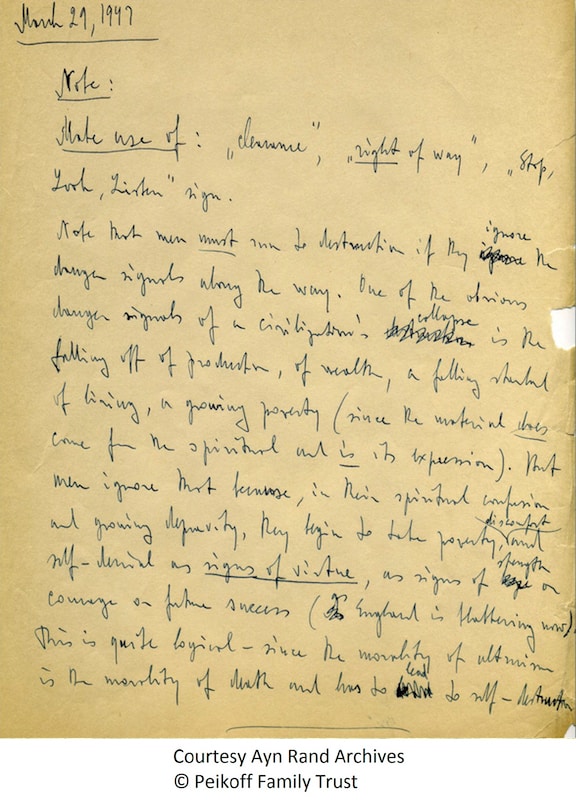 March 29, 1947
Note:
Make use of: „clearance”, „right of way”, „Stop,
Look, Listen” sign.
Note that men must run to destruction if they ignore the
danger signals along the way. One of the obvious
danger signals of a civilization's collapse is the
falling off of production, of wealth, a falling standard
of living, a growing poverty (since the material does
come from the spiritual and is its expression). But
men ignore that because, in their spiritual confusion
and growing depravity, they begin to take poverty, discomfort and
self-denial as signs of virtue, as signs of strength or
courage or future success (England is flattering now).
This is quite logical – since the morality of altruism
is the morality of death and has to lead to self-destruction
Courtesy Ayn Rand Archives
© Peikoff Family Trust